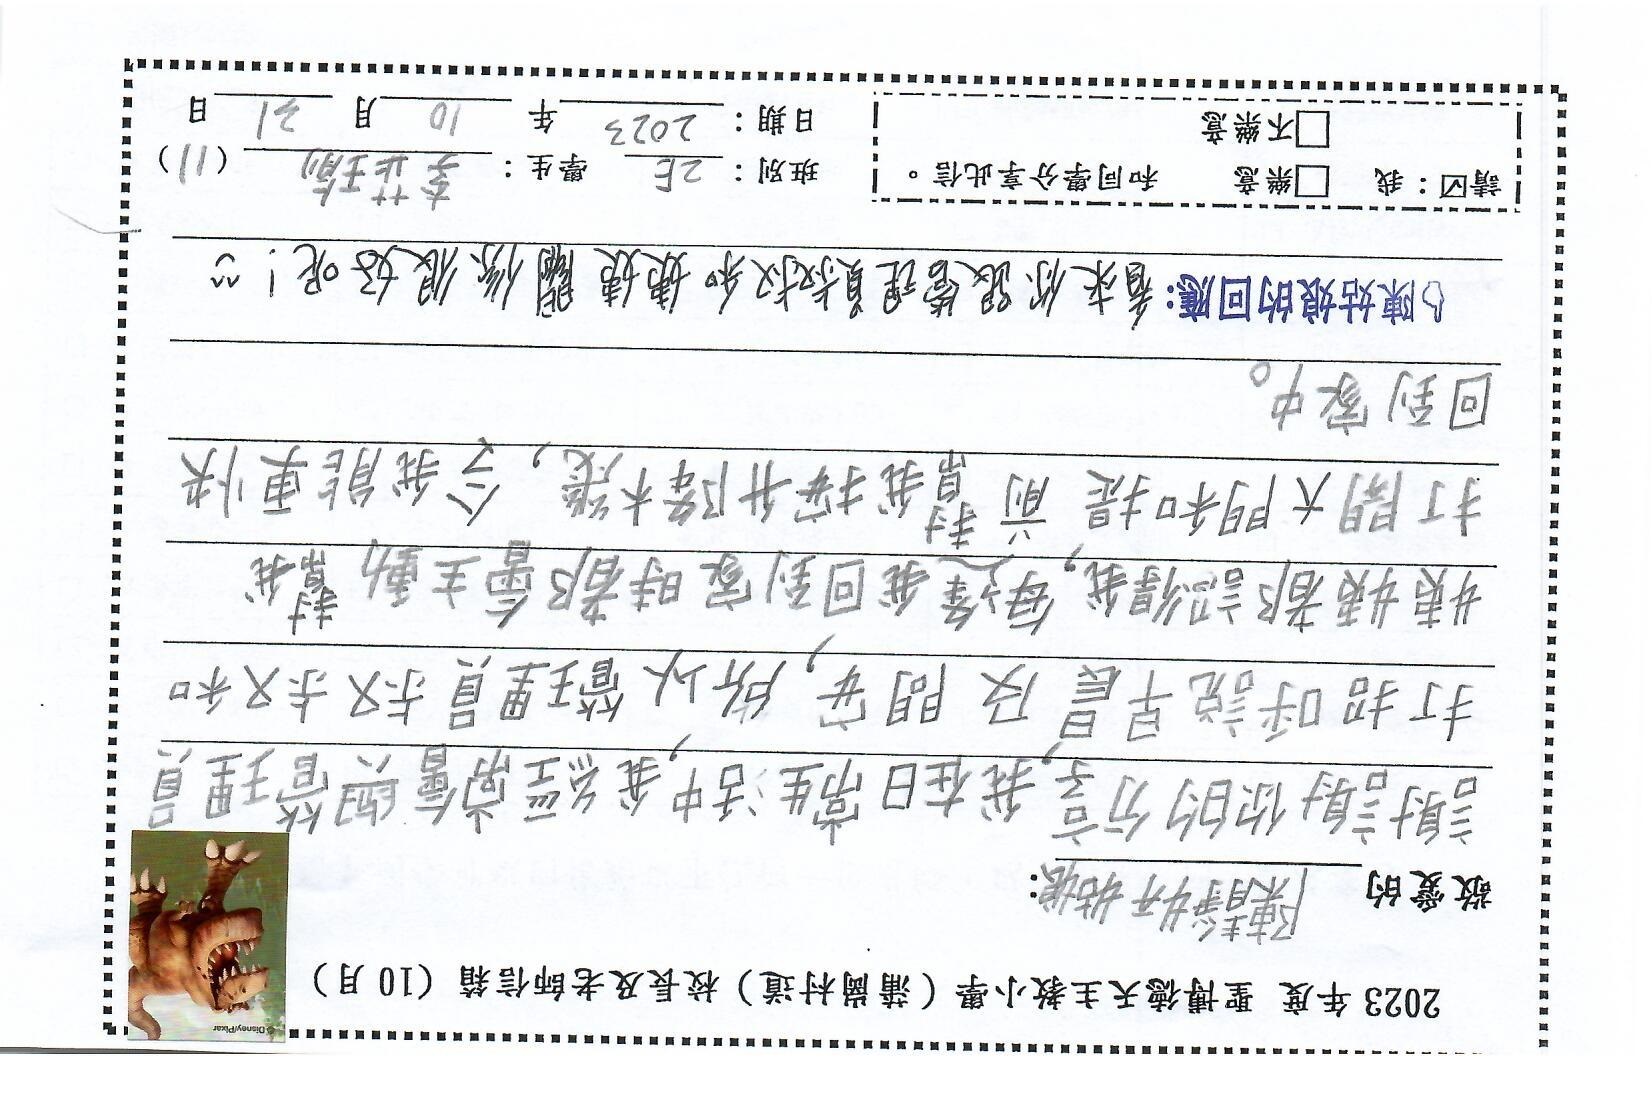 2023 年度 聖博德天主教小學（蒲崗村道）校長及老師信箱（10 月）
©Disney/Pixar
敬愛的 陳靜妍姑娘:
謝謝你的分享,我在日常生活中,我經常會與管理員
打招呼說早晨及問安,所以管理員叔叔和
姨姨都認得我,每逢我回到家時都會主動幫我
打開大門和提前幫我按升降機,令我能更快
回到家中。
陳姑娘的回應: 看來你跟管理員叔叔和姨姨關係很好呢!
請☑：我 □樂意 和同學分享此信。
□不樂意
班別： 2E 學生： （11）
日期： 2023 年 10 月 31 日